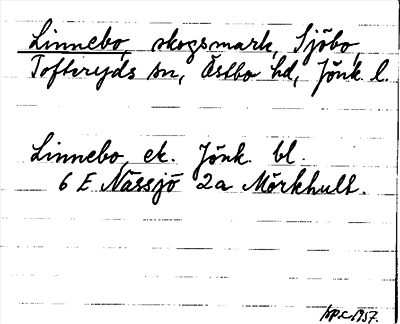 Linnebo, skogsmark, Sjöbo,
Tofteryds sn, Östbo hd, Jönk. l.
Linnebo, ek. Jönk. bl.
6 E Nässjö 2a Mörkhult.
1957.